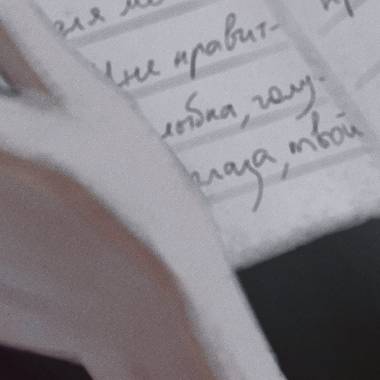 для ме
Мне нравит-
лыбка, голу-
глаза, твой